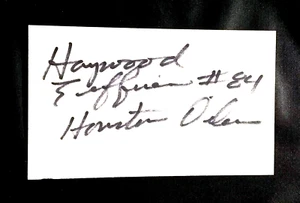 Haywood
Jeffires #84
Houston Oilers